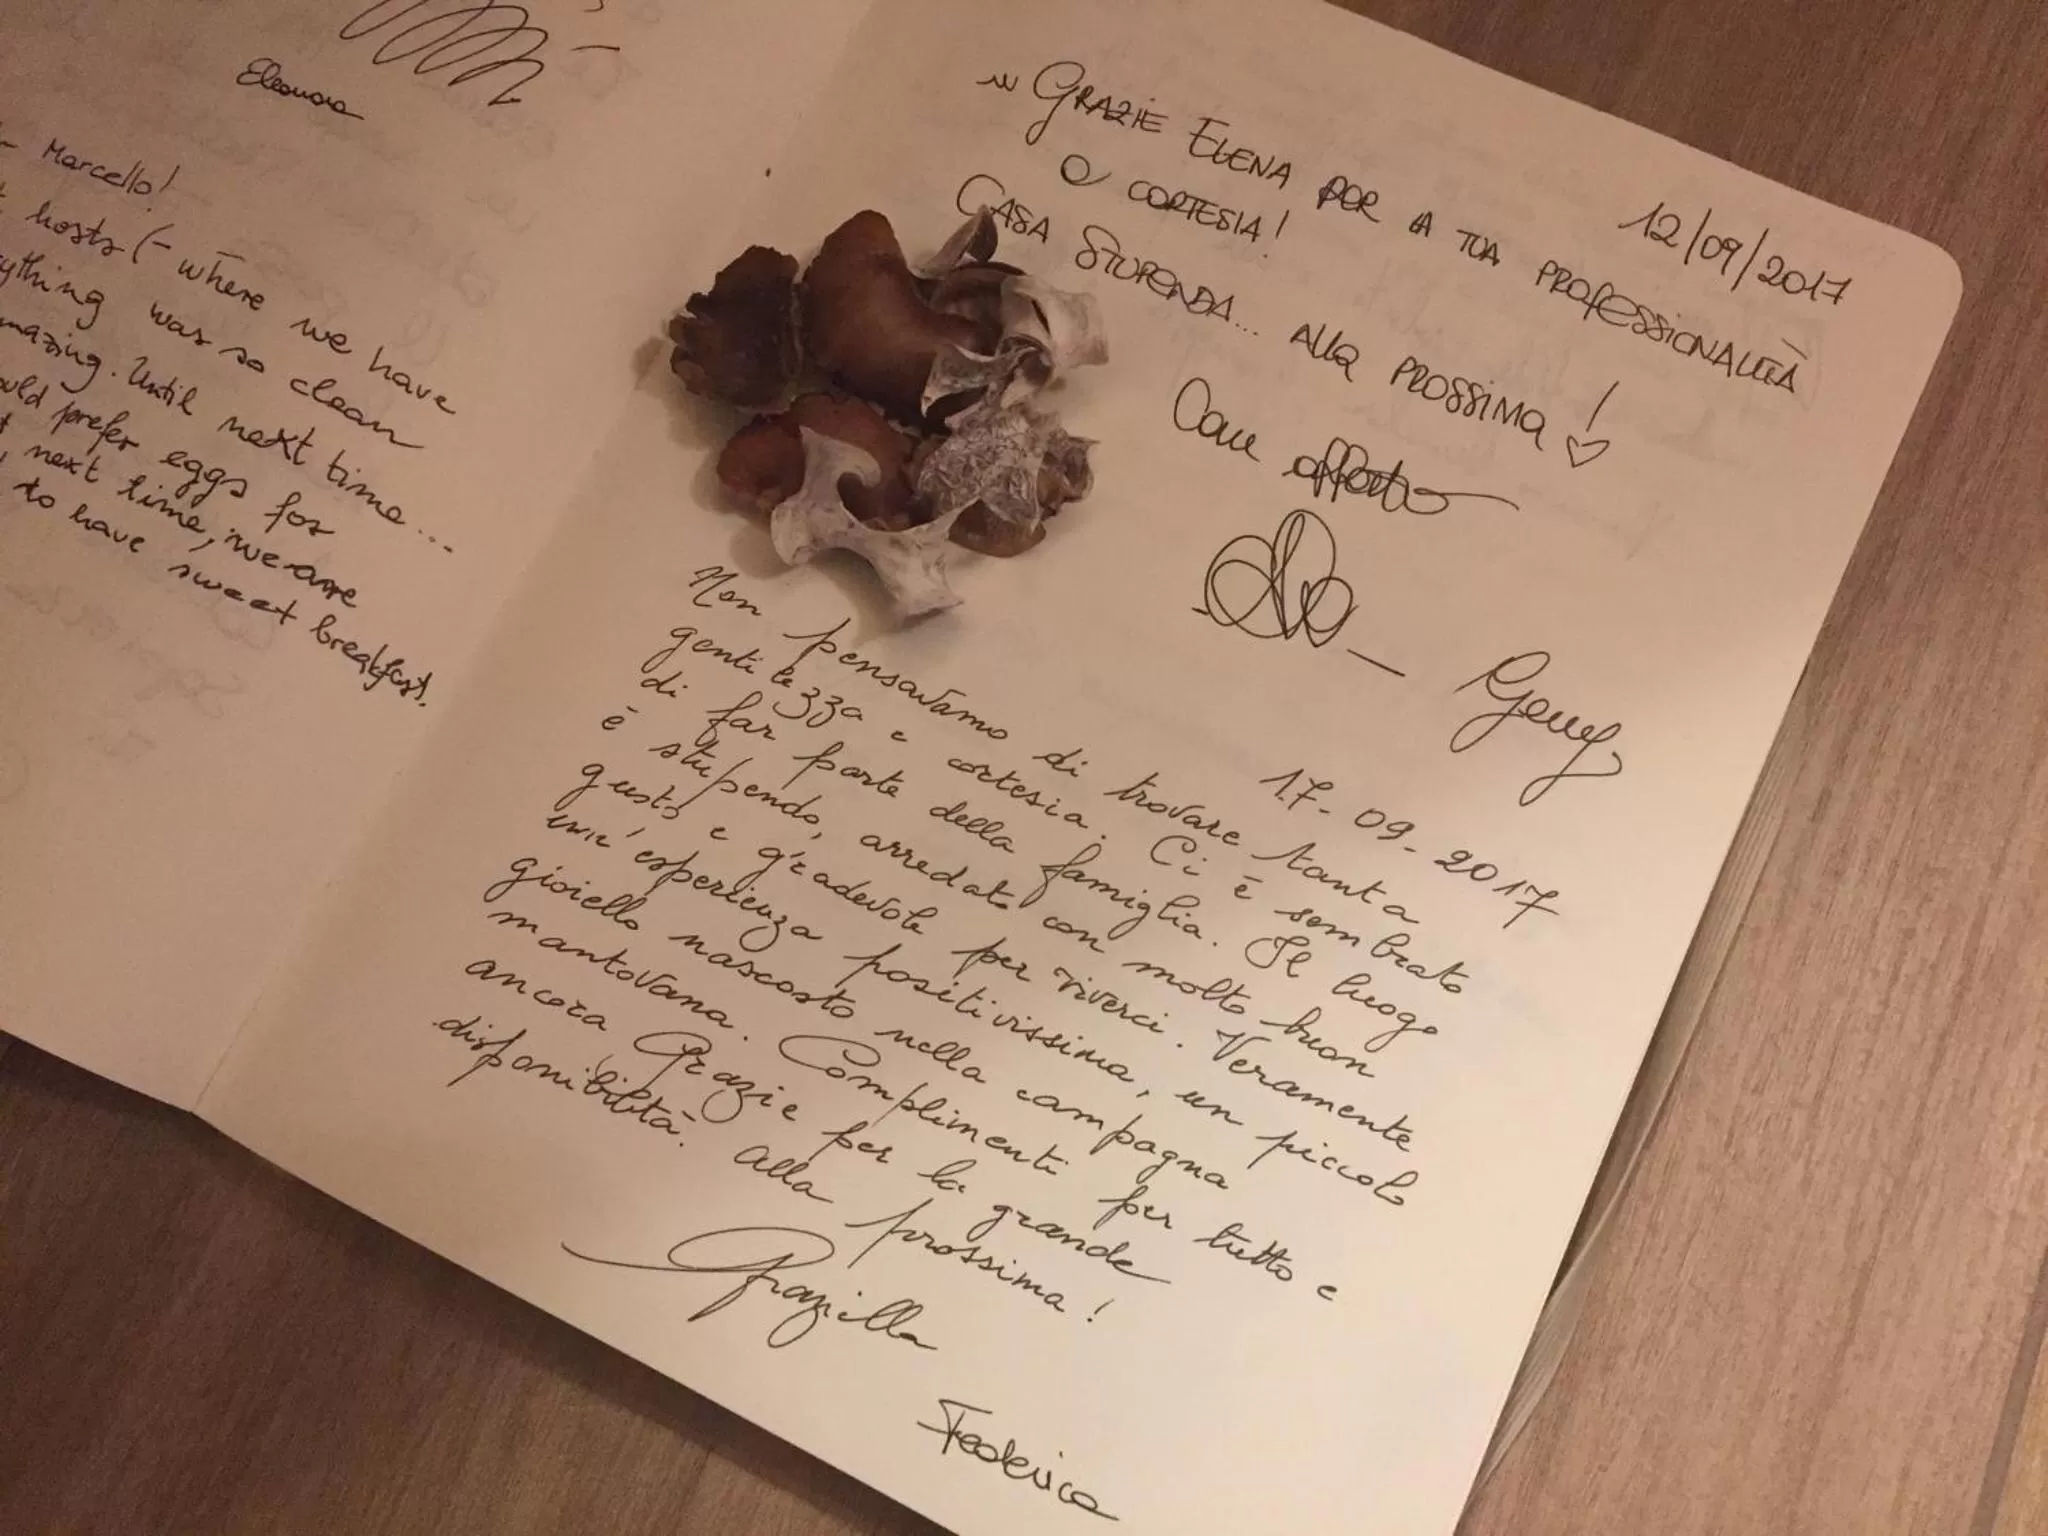 Eleonora
Marcello!
hosts (- where we have
ything was so clean
mazing. Until next time...
ould prefer eggs for
next time, we are
to have sweet breakfast.
12/09/2017
GRAZIE ELENA PER LA TUA PROFESSIONALITÀ
e CORTESIA!
CASA STUPENDA... ALLA PROSSIMA!
Con affetto
17-09-2017
Non pensavamo di trovare tanta
gentilezza e cortesia. Ci è sembrato
di far parte della famiglia. Il luogo
è stupendo, arredato con molto buon
gusto e gradevole per viverci. Veramente
un'esperienza positivissima, un piccolo
gioiello nascosto nella campagna
mantovana. Complimenti per tutto e
ancora Grazie per la grande
disponibilità. Alla prossima!
Grazilla
Federica